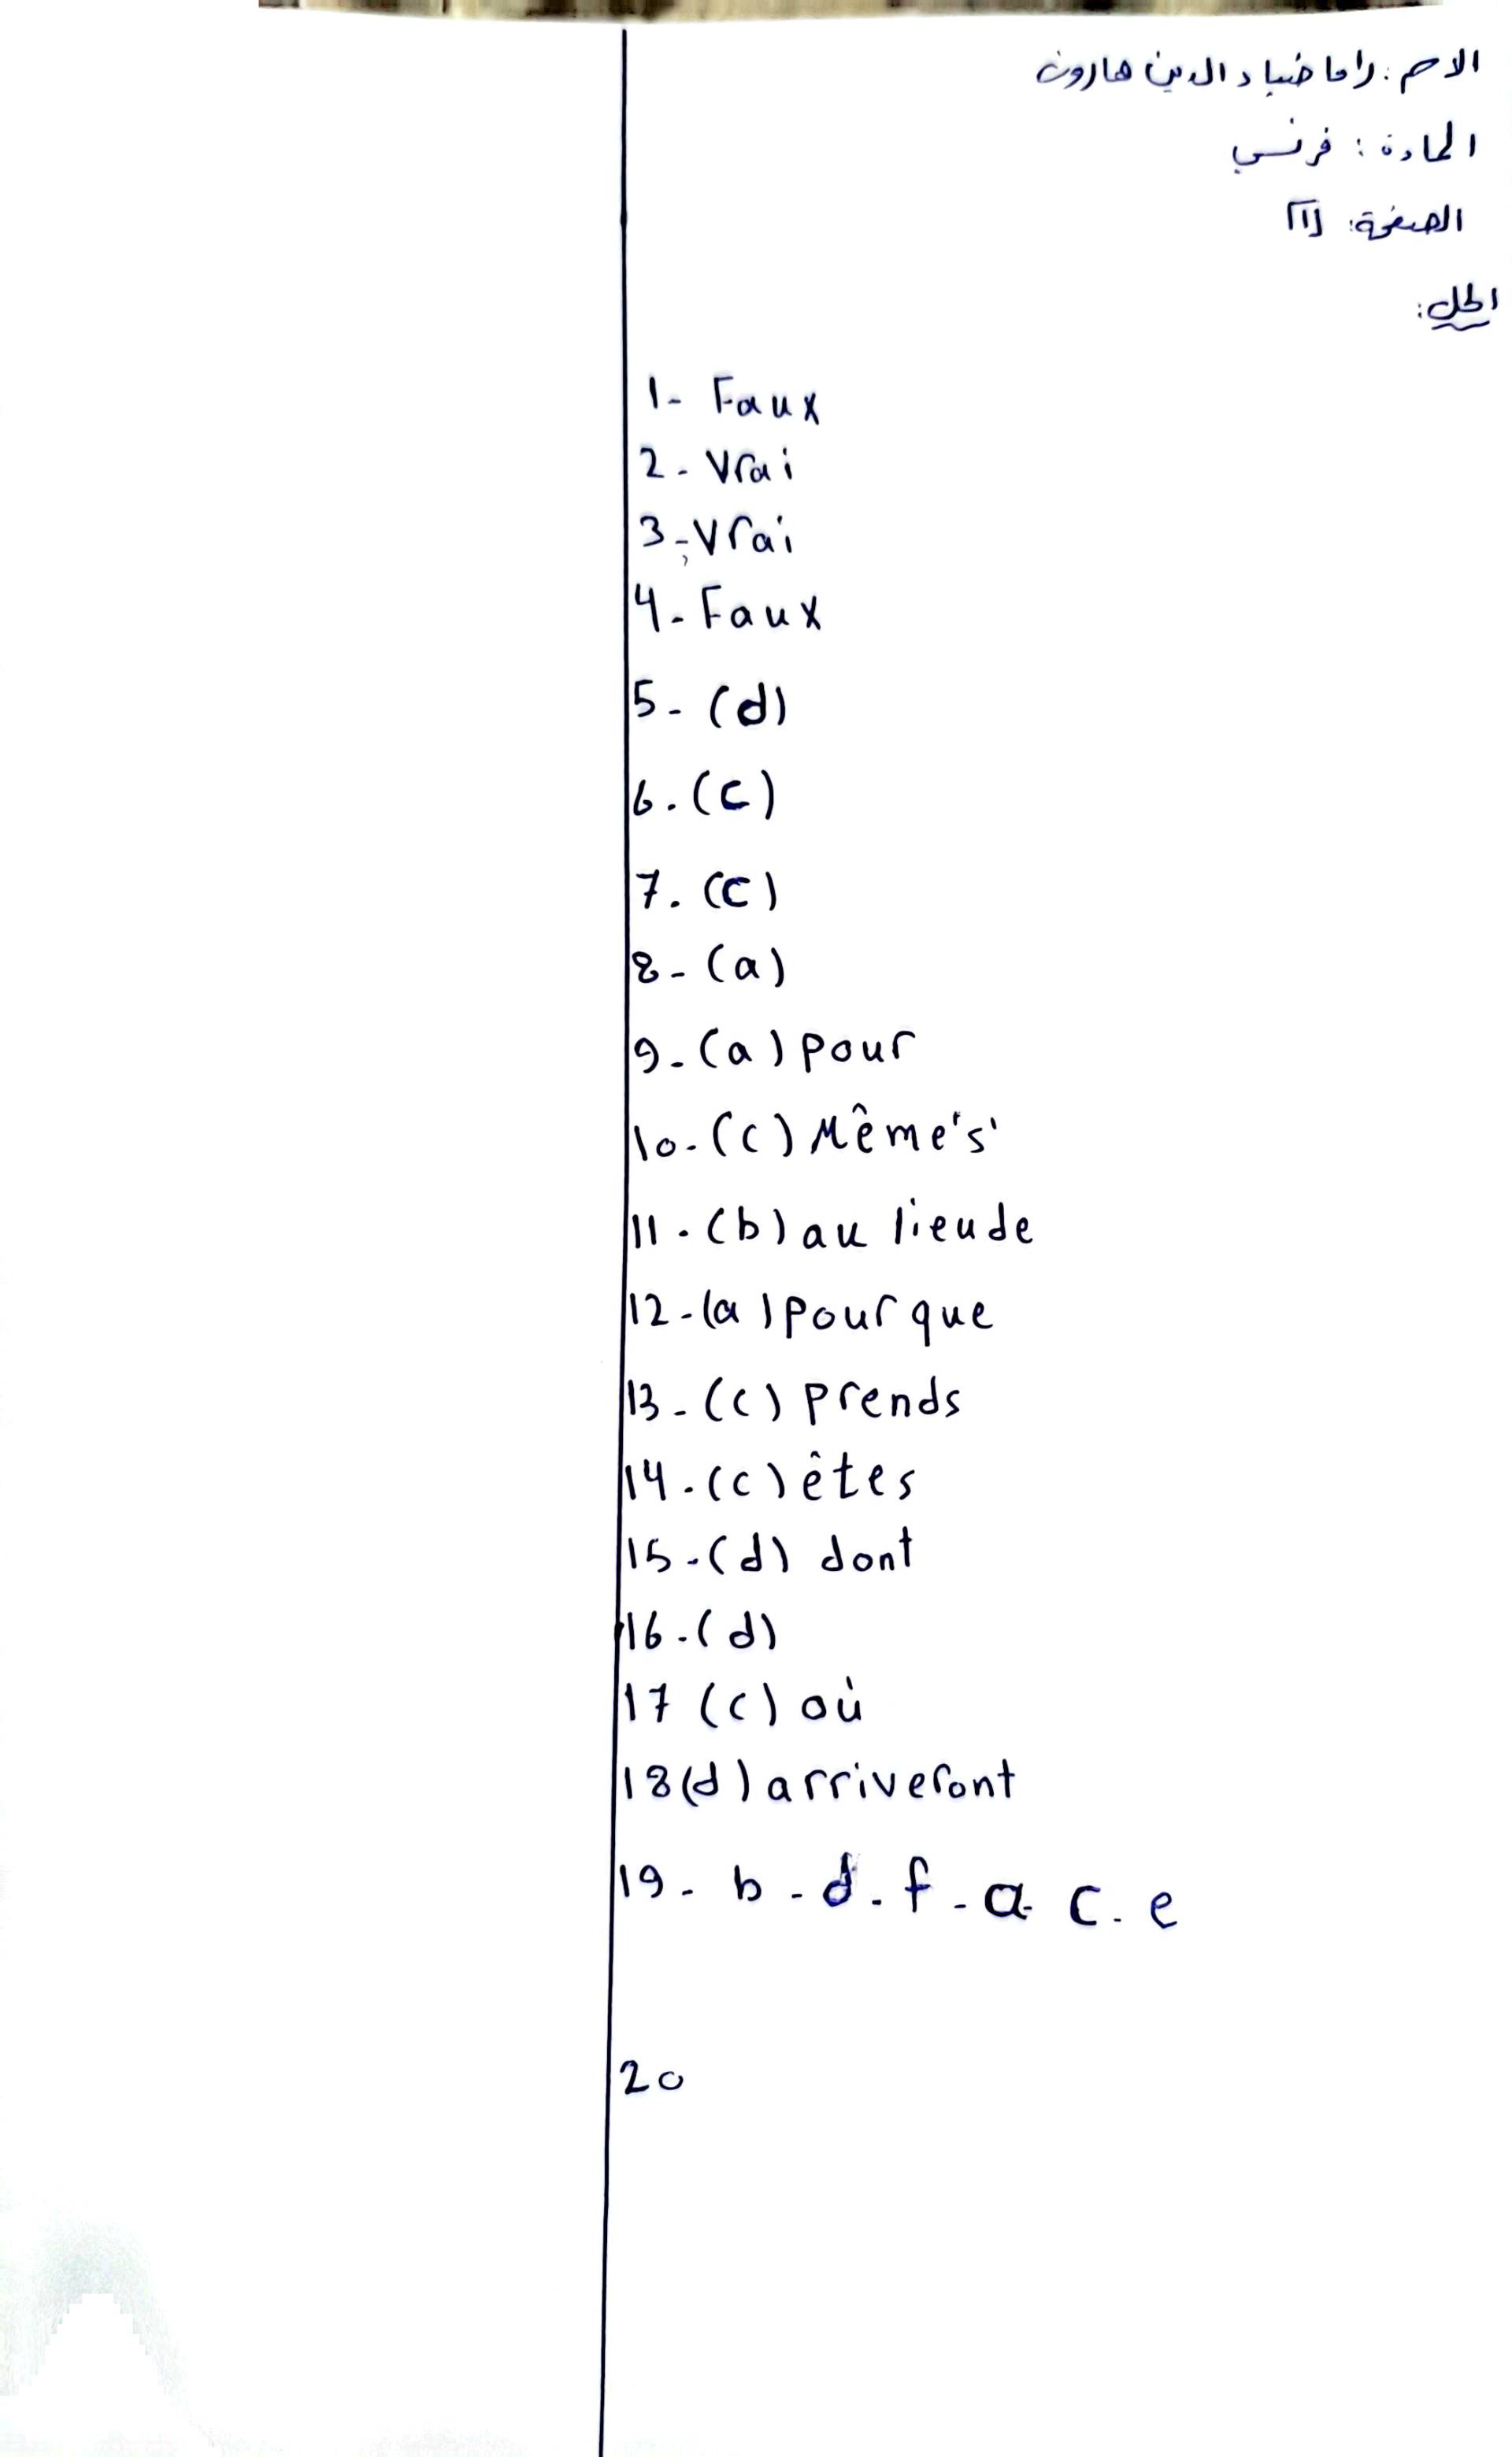 الاسم: راما ضياء الدين هارون
المادة: فرنسي
الصفحة: [1]
الحل:
1- Faux
2- Vrai
3- Vrai
4- Faux
5- (d)
6. (c)
7. (c)
8- (a)
9- (a) pour
10- (c) Même's'
11. (b) au lieude
12- (a) pour que
13- (c) prends
14. (c) êtes
15-(d) dont
16-(d)
17 (c) où
18 (d) arriveront
19- b - d. f - a. c. e
20